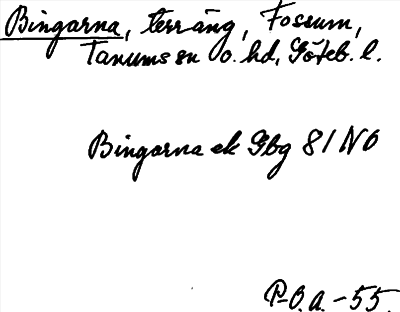 Bingarna, terräng, Fossum,
Tanums sn o. hd, Göteb. l.
Bingarna ek Gbg 81 NO
P-O.A. -55.